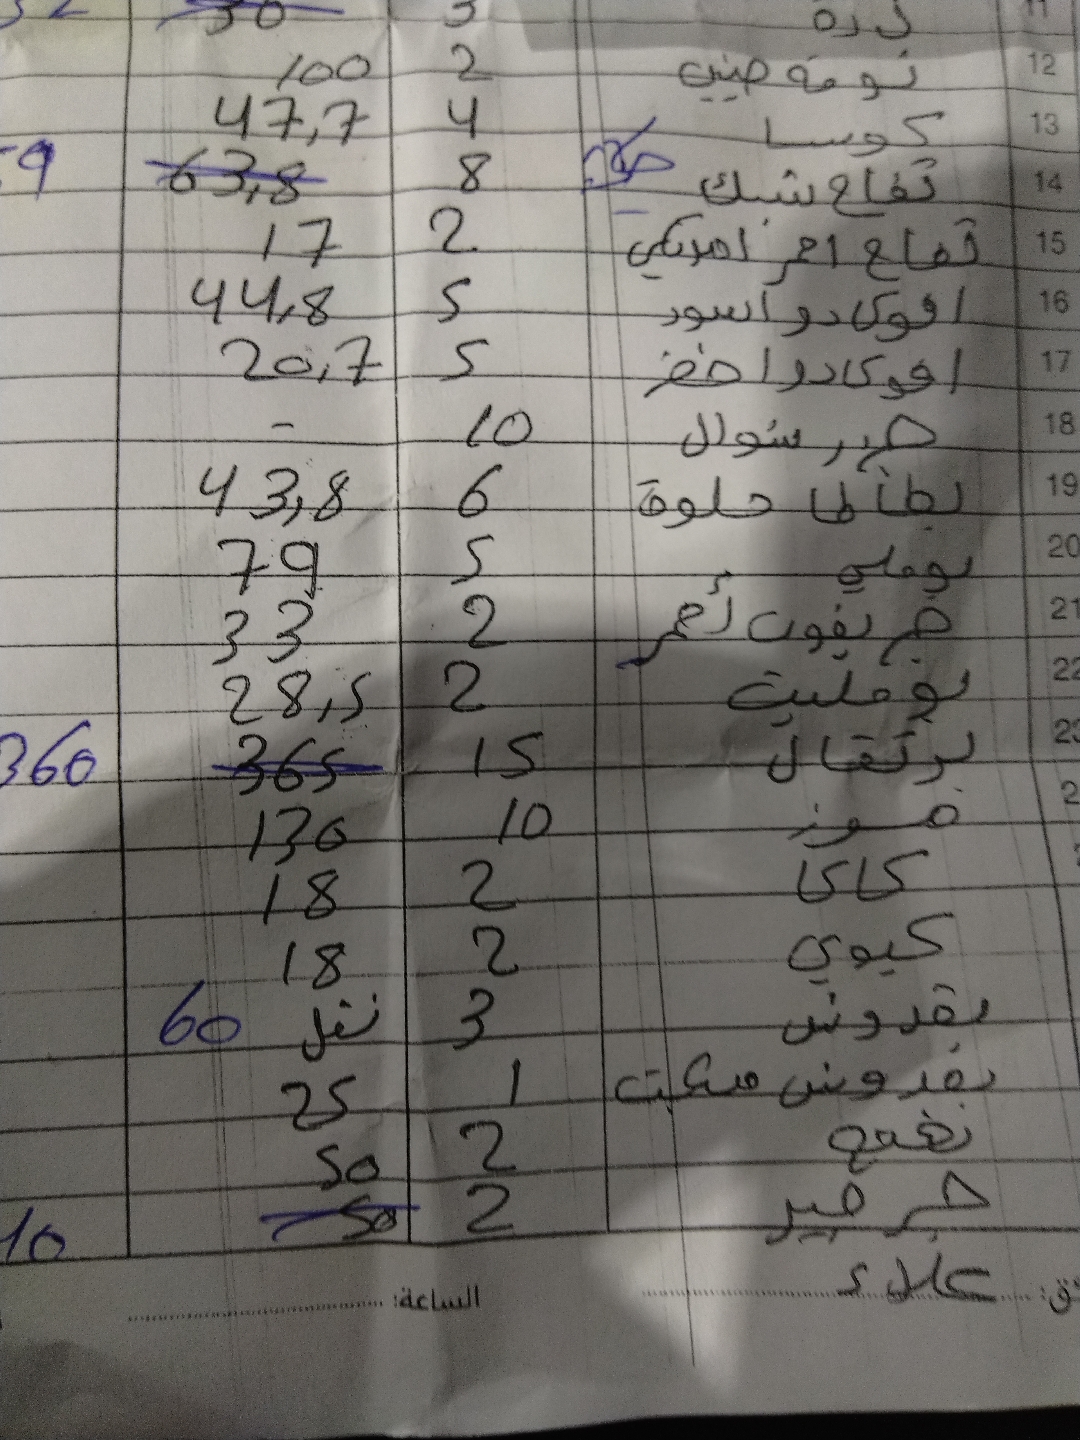 11 ذرة 3 30
12 ثومة صيني 2 100
13 كوسا 4 47,7
14 تفاح شبك 8 63,8 59
15 تفاح احمر امريكي 2 17
16 افوكادو اسود 5 44,8
17 افوكادو اخضر 5 20,7
18 10 -
19 بطاطا حلوة 6 43,8
20 بوملي 5 79
21 جريفوت أحمر 2 33
22 بومليت 2 28,5
23 برتقال 15 365 360
2 موز 10 130
2 كاكا 2 18
كيوي 2 18
بقدونس 3 نغل 60
بقدونس 1 25
نعنع 2 50
جرجير 2 50 10
علاء
الساعة: